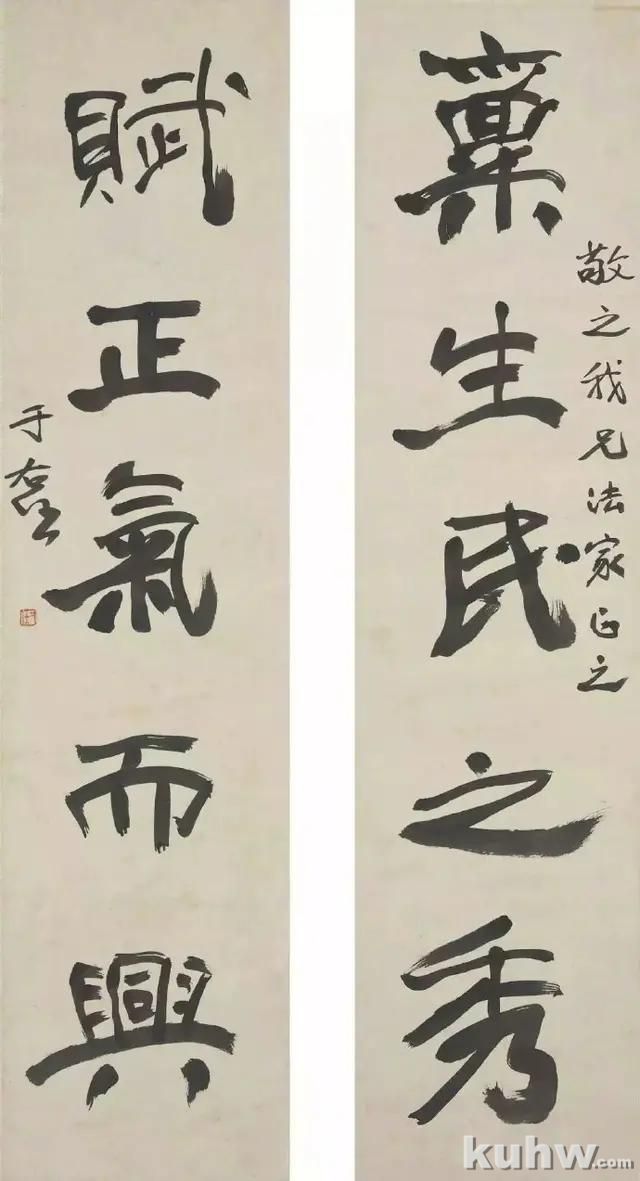 敬之我兄法家正之
稟生民之秀
賦正氣而興
于右任
kuhw.com